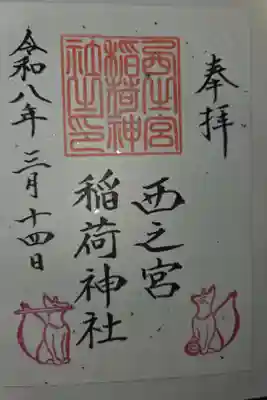 奉拝
西之宮
稲荷神
社之印
西之宮
稲荷神社
令和八年 三月十四日